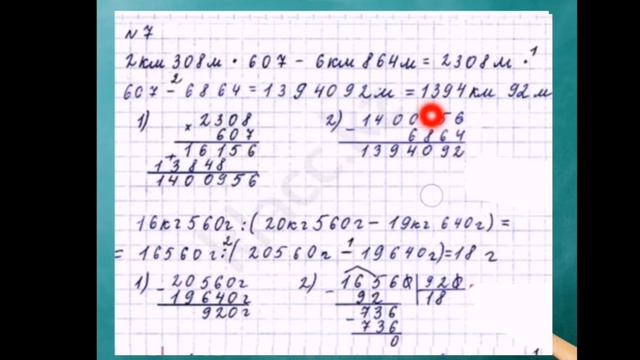 №7
2км 308м · 607 - 6км 864м = 2308м ·
607 - 6864 = 1394092м = 1394км 92м
1) × 2308
607
16156
+ 13848
1400956
2) - 1400 56
6864
1394092
16кг560г : (20кг560г - 19кг 640г) =
= 16560г : (20560г - 19640г) = 18 г
1) - 20560г
19640г
920г
2) - 16560 920
92 18
- 736
736
0